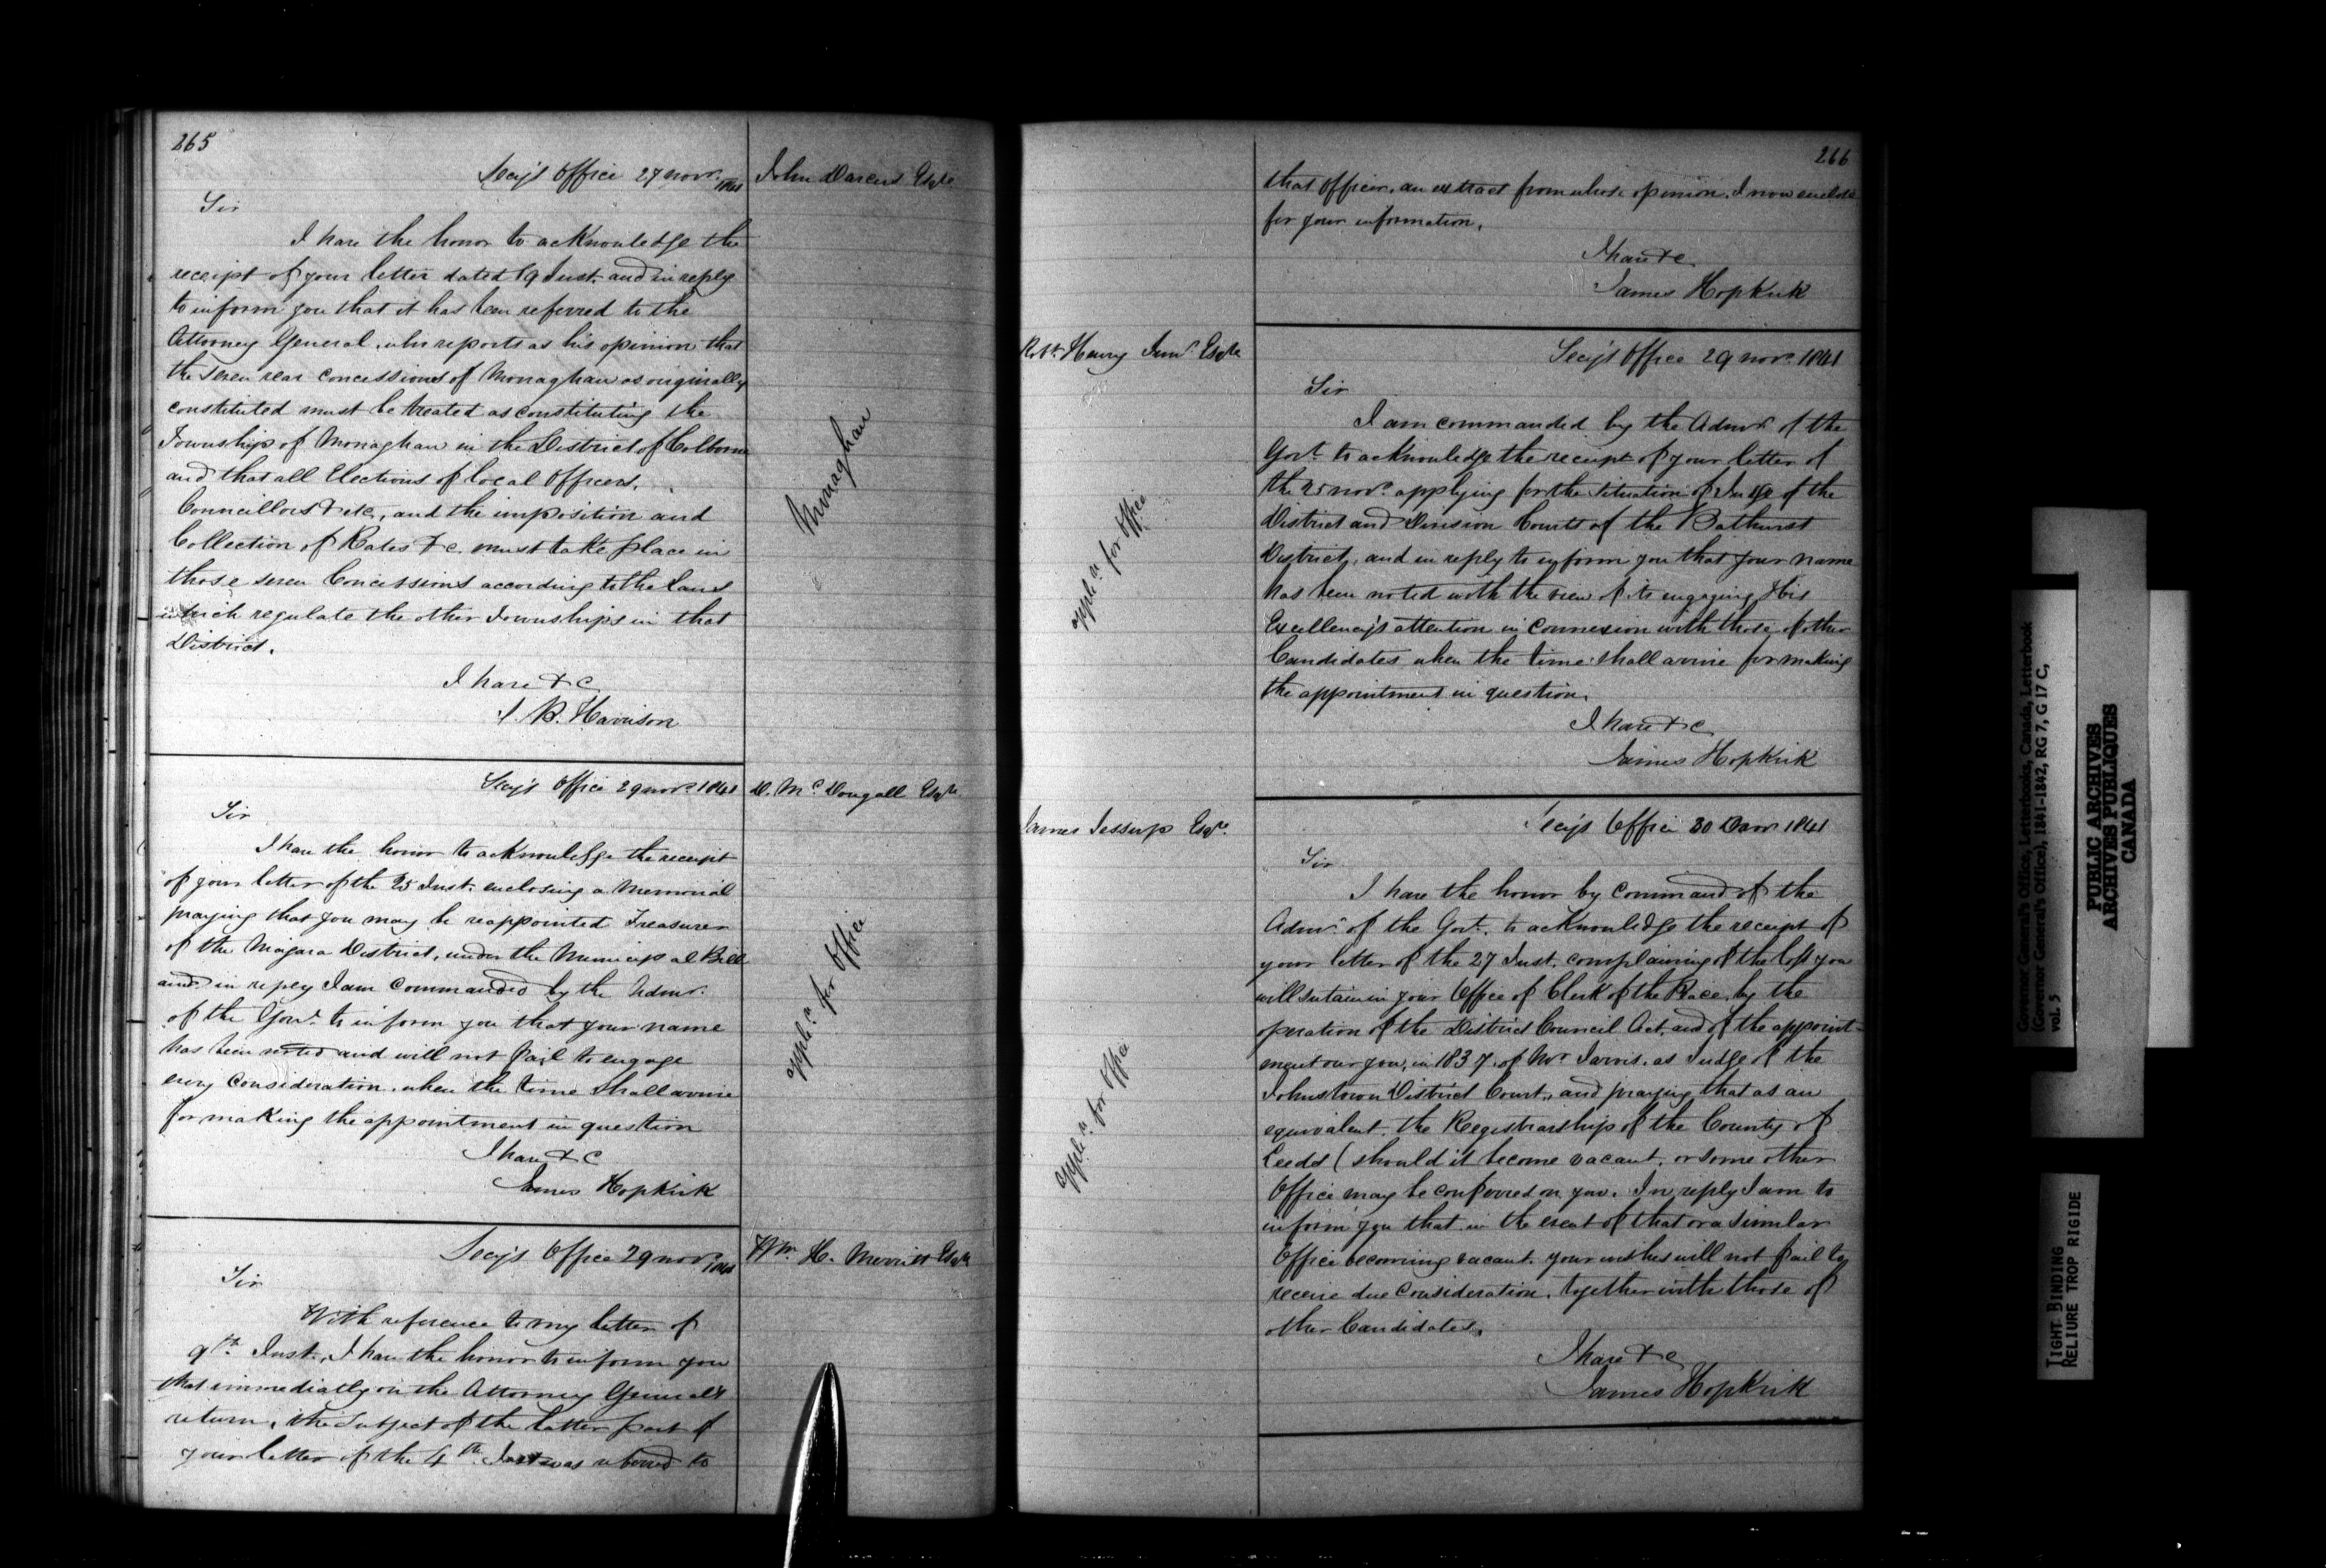 265
Secy's Office 27 Novr. 1841
John Darcus Esqre
Sir
I have the honor to acknowledge the
receipt of your letter dated 19 Inst. and in reply
to inform you that it has been referred to the
Attorney General, who reports as his opinion that
the seven rear concessions of Monaghan as originally
constituted must be treated as constituting the
Township of Monaghan in the District of Colborne
and that all Elections of local Officers,
Councillors & etc, and the imposition and
Collection of Rates &c. must take place in
those seven Concessions according to the Laws
which regulate the other Townships in that
District.
Monaghan
I have &c
S. B. Harrison
Secy's Office 29 Novr. 1841
D. McDougall Esqre
Sir
I have the honor to acknowledge the receipt
of your letter of the 25 Inst. enclosing a Memorial
praying that you may be reappointed Treasurer
of the Niagara District, under the Municipal Bill
and in reply I am Commanded by the Admr.
of the Govt. to inform you that your name
has been noted and will not fail to engage
every Consideration, when the time shall arrive
for making the appointment in question
applcn for Office
I have &c
James Hopkirk
Secy's Office 29 Novr. 1841
Wm. H. Merritt Esqre
Sir
With reference to my letter of
9th. Inst., I have the honor to inform you
that immediatly on the Attorney General's
return, the Subject of the latter part of
your letter of the 4th Inst was referred to
266
that Officer, an extract from whose opinion, I now enclose
for your information.
I have &c
James Hopkirk
Robt. Henry Junr. Esqre
Secy's Office 29 Novr. 1841
Sir
I am commanded by the Admr. of the
Govt. to acknowledge the receipt of your letter of
the 25 Novr. applying for the Situation of Judge of the
District and Division Courts of the Bathurst
District, and in reply to inform you that your name
has been noted with the view of its engaging His
Excellency's attention in Connexion with those of other
Candidates when the time shall arrive for making
the appointment in question.
applcn for Office
I have &c
James Hopkirk
James Jessup Esqr.
Secy's Office 30 1841
Sir
I have the honor by Command of the
Admr. of the Govt. to acknowledge the receipt of
your letter of the 27 Inst. complaining of the loss you
will sustain in your Office of Clerk of the Peace, by the
operation of the District Council Act, and of the appoint-
ment over you, in 1837, of Mr Jarvis, as Judge of the
Johnstown District Court, and praying that as an
equivalent, the Registrarship of the County of
Leeds (should it become vacant, or some other
Office may be conferred on you. In reply I am to
inform you that in the event of that or a similar
Office becoming vacant, your wishes will not fail to
receive due Consideration, together with those of
other Candidates.
applcn for Office
I have &c
James Hopkirk
Governor General's Office, Letterbooks, Canada, Letterbook
(Governor General's Office), 1841-1842, RG 7, G 17 C,
vol. 5
PUBLIC ARCHIVES
ARCHIVES PUBLIQUES
CANADA
TIGHT BINDING
RELIURE TROP RIGIDE